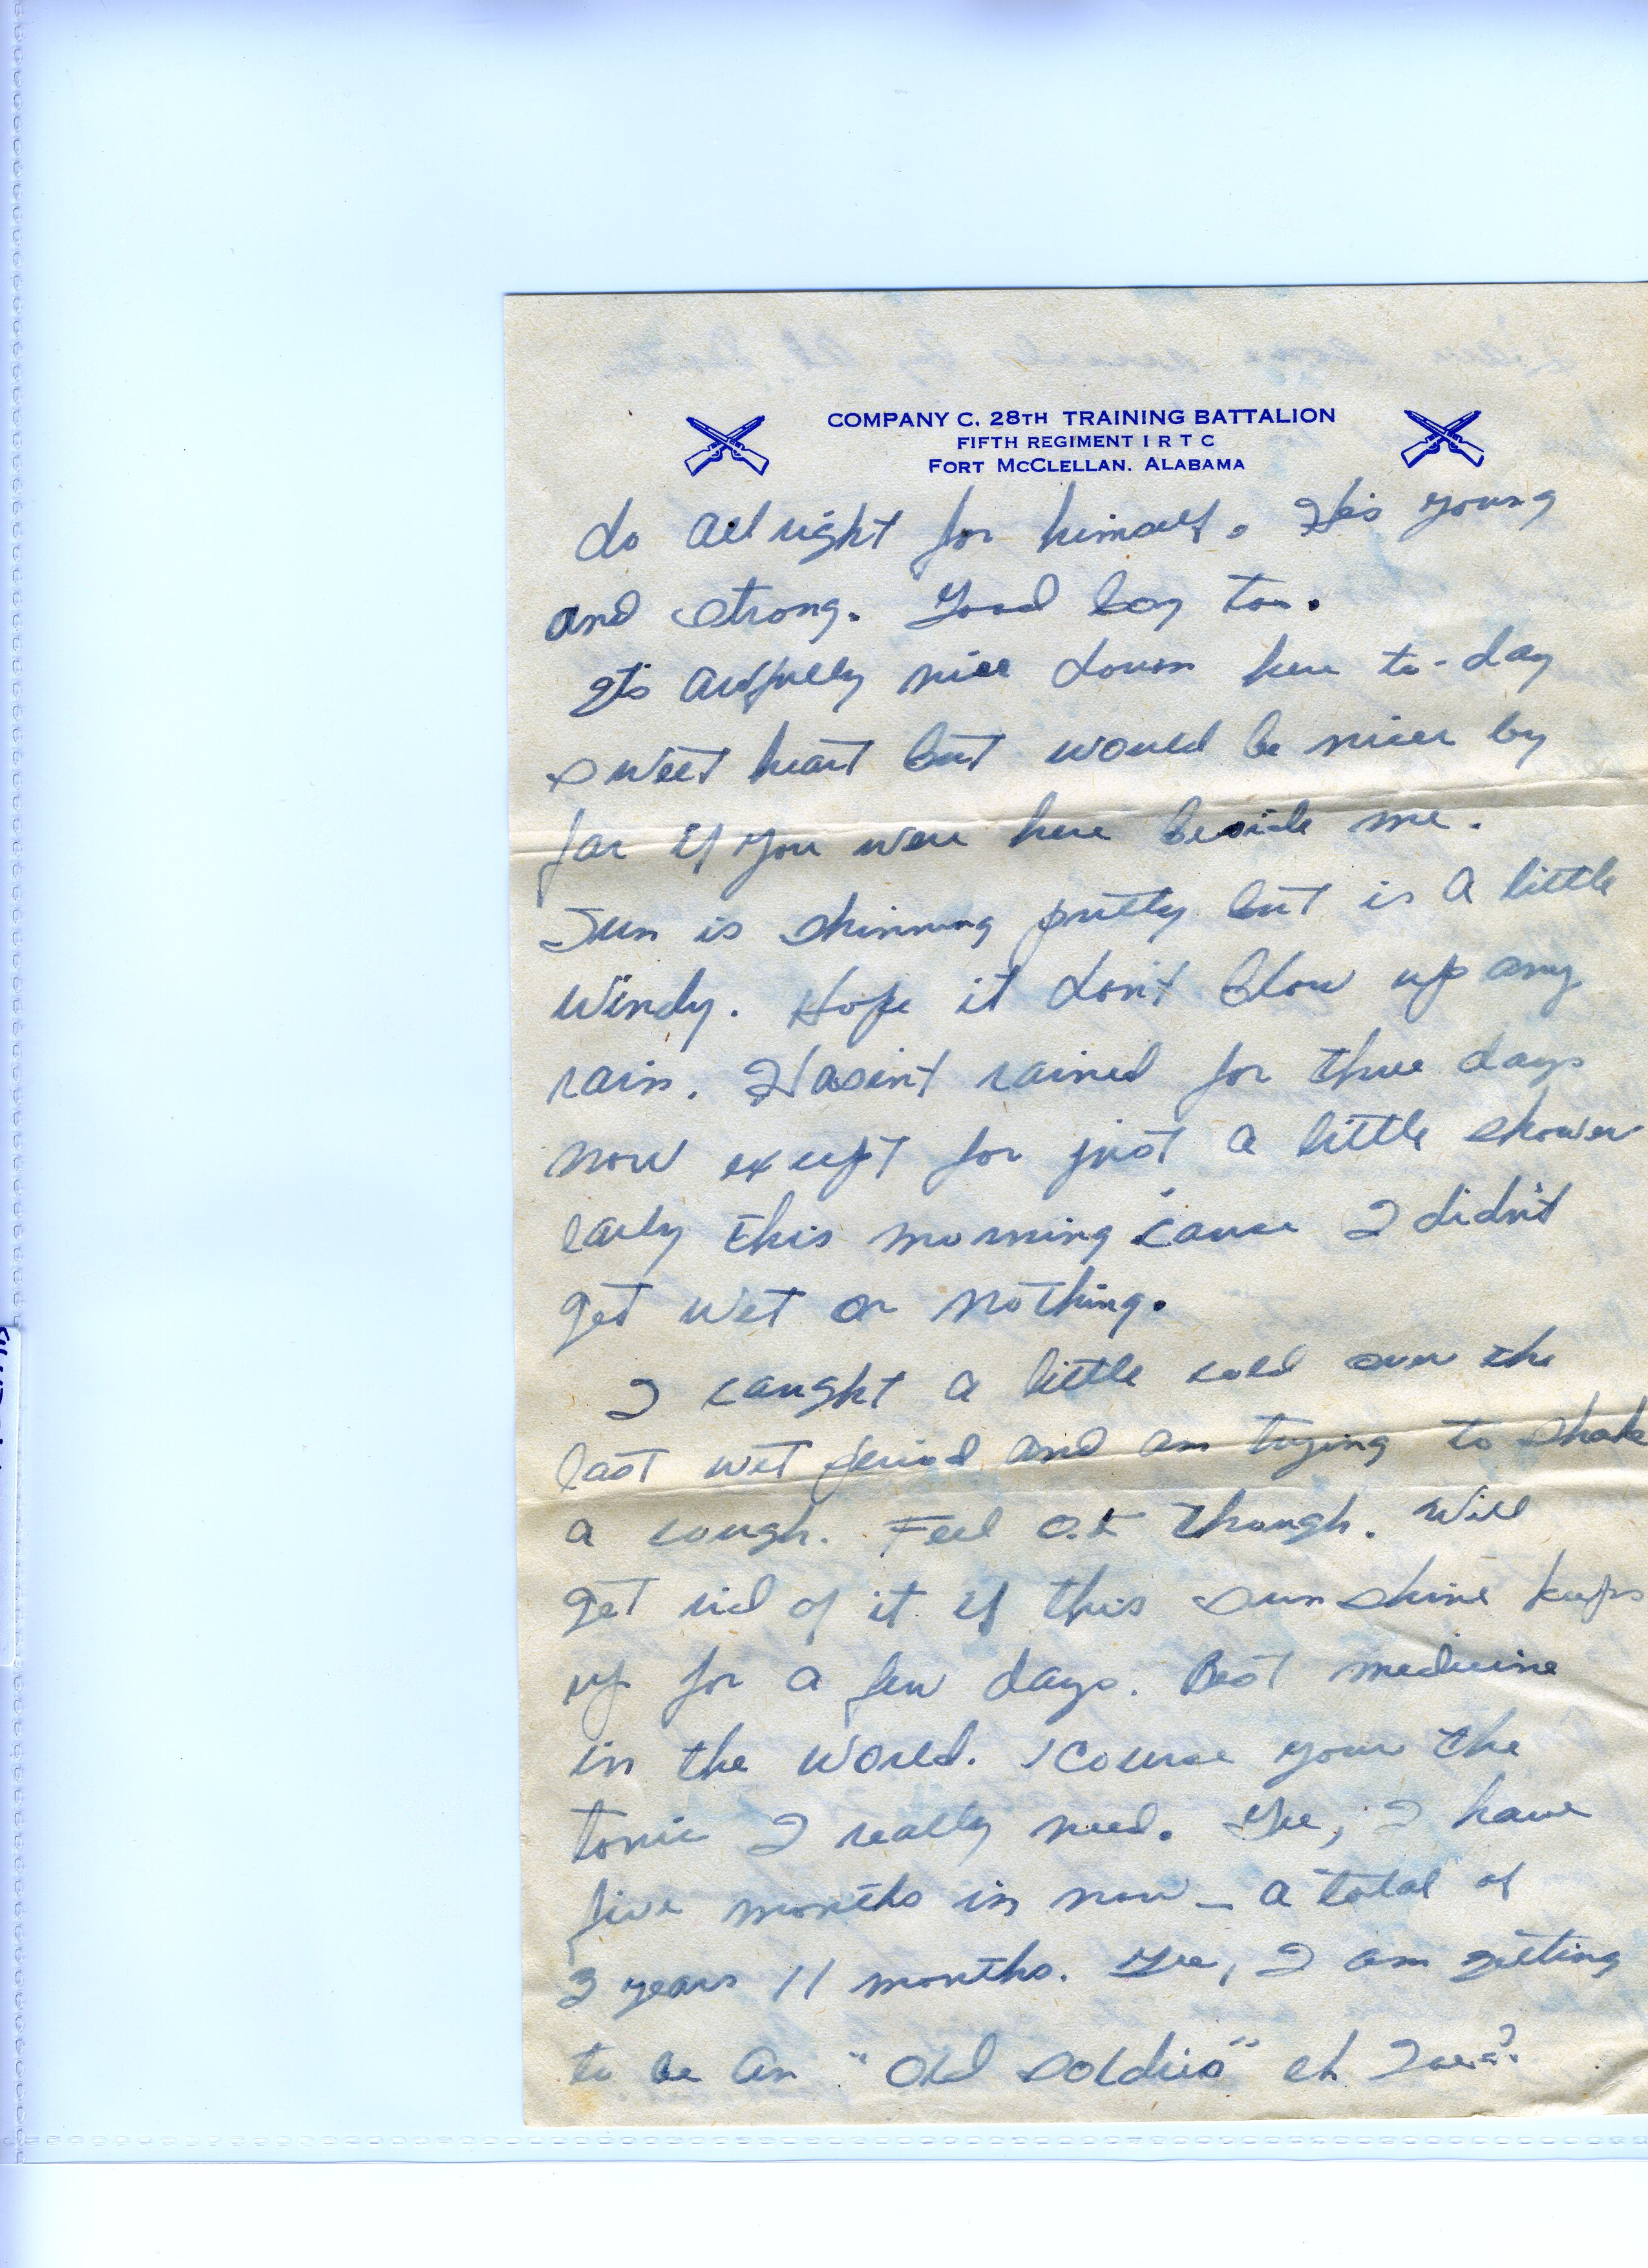 COMPANY C. 28TH TRAINING BATTALION
FIFTH REGIMENT I R T C
FORT MCCLELLAN. ALABAMA
do all right for himself. He's young
and strong. Good boy too.
It's awfully nice down here to-day
sweet heart but would be nicer by
far if you were here beside me.
Sun is shinning pretty but is a little
windy. Hope it don't blow up any
rain. Hasn't rained for three days
now except for just a little shower
early this morning 'cause I didn't
get wet or nothing.
I caught a little cold over the
last wet period and am trying to shake
a cough. Feel O.K though. Will
get rid of it if this sunshine keeps
up for a few days. Best medicine
in the world. 'Course your the
tonic I really need. Gee, I have
five months in now - a total of
3 years 11 months. Gee, I am getting
to be an "Old Soldier" eh